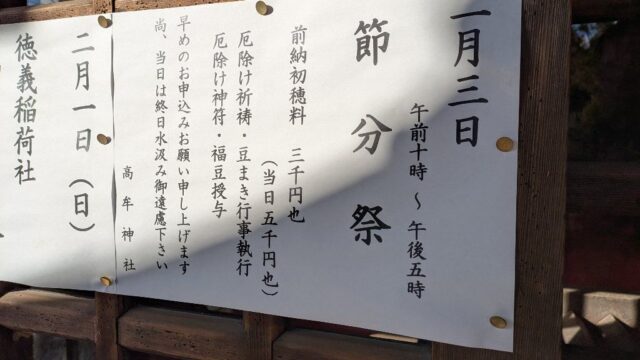 月三日
午前十時 ～ 午後五時
節分祭
前納初穂料 三千円也
(当日五千円也)
厄除け祈祷・豆まき行事執行
厄除け神符・福豆授与
早めのお申込みお願い申し上げます
尚、当日は終日水汲み御遠慮下さい
高牟神社
二月一日(日)
徳義稲荷社